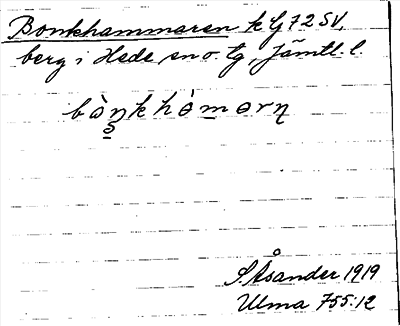 Bonkhammaren k Lj 72 SV,
berg i Hede sn o. tg, Jämtl. l.
bὰŋkhàmərn
S. Åsander 1919
Ulma 755:12